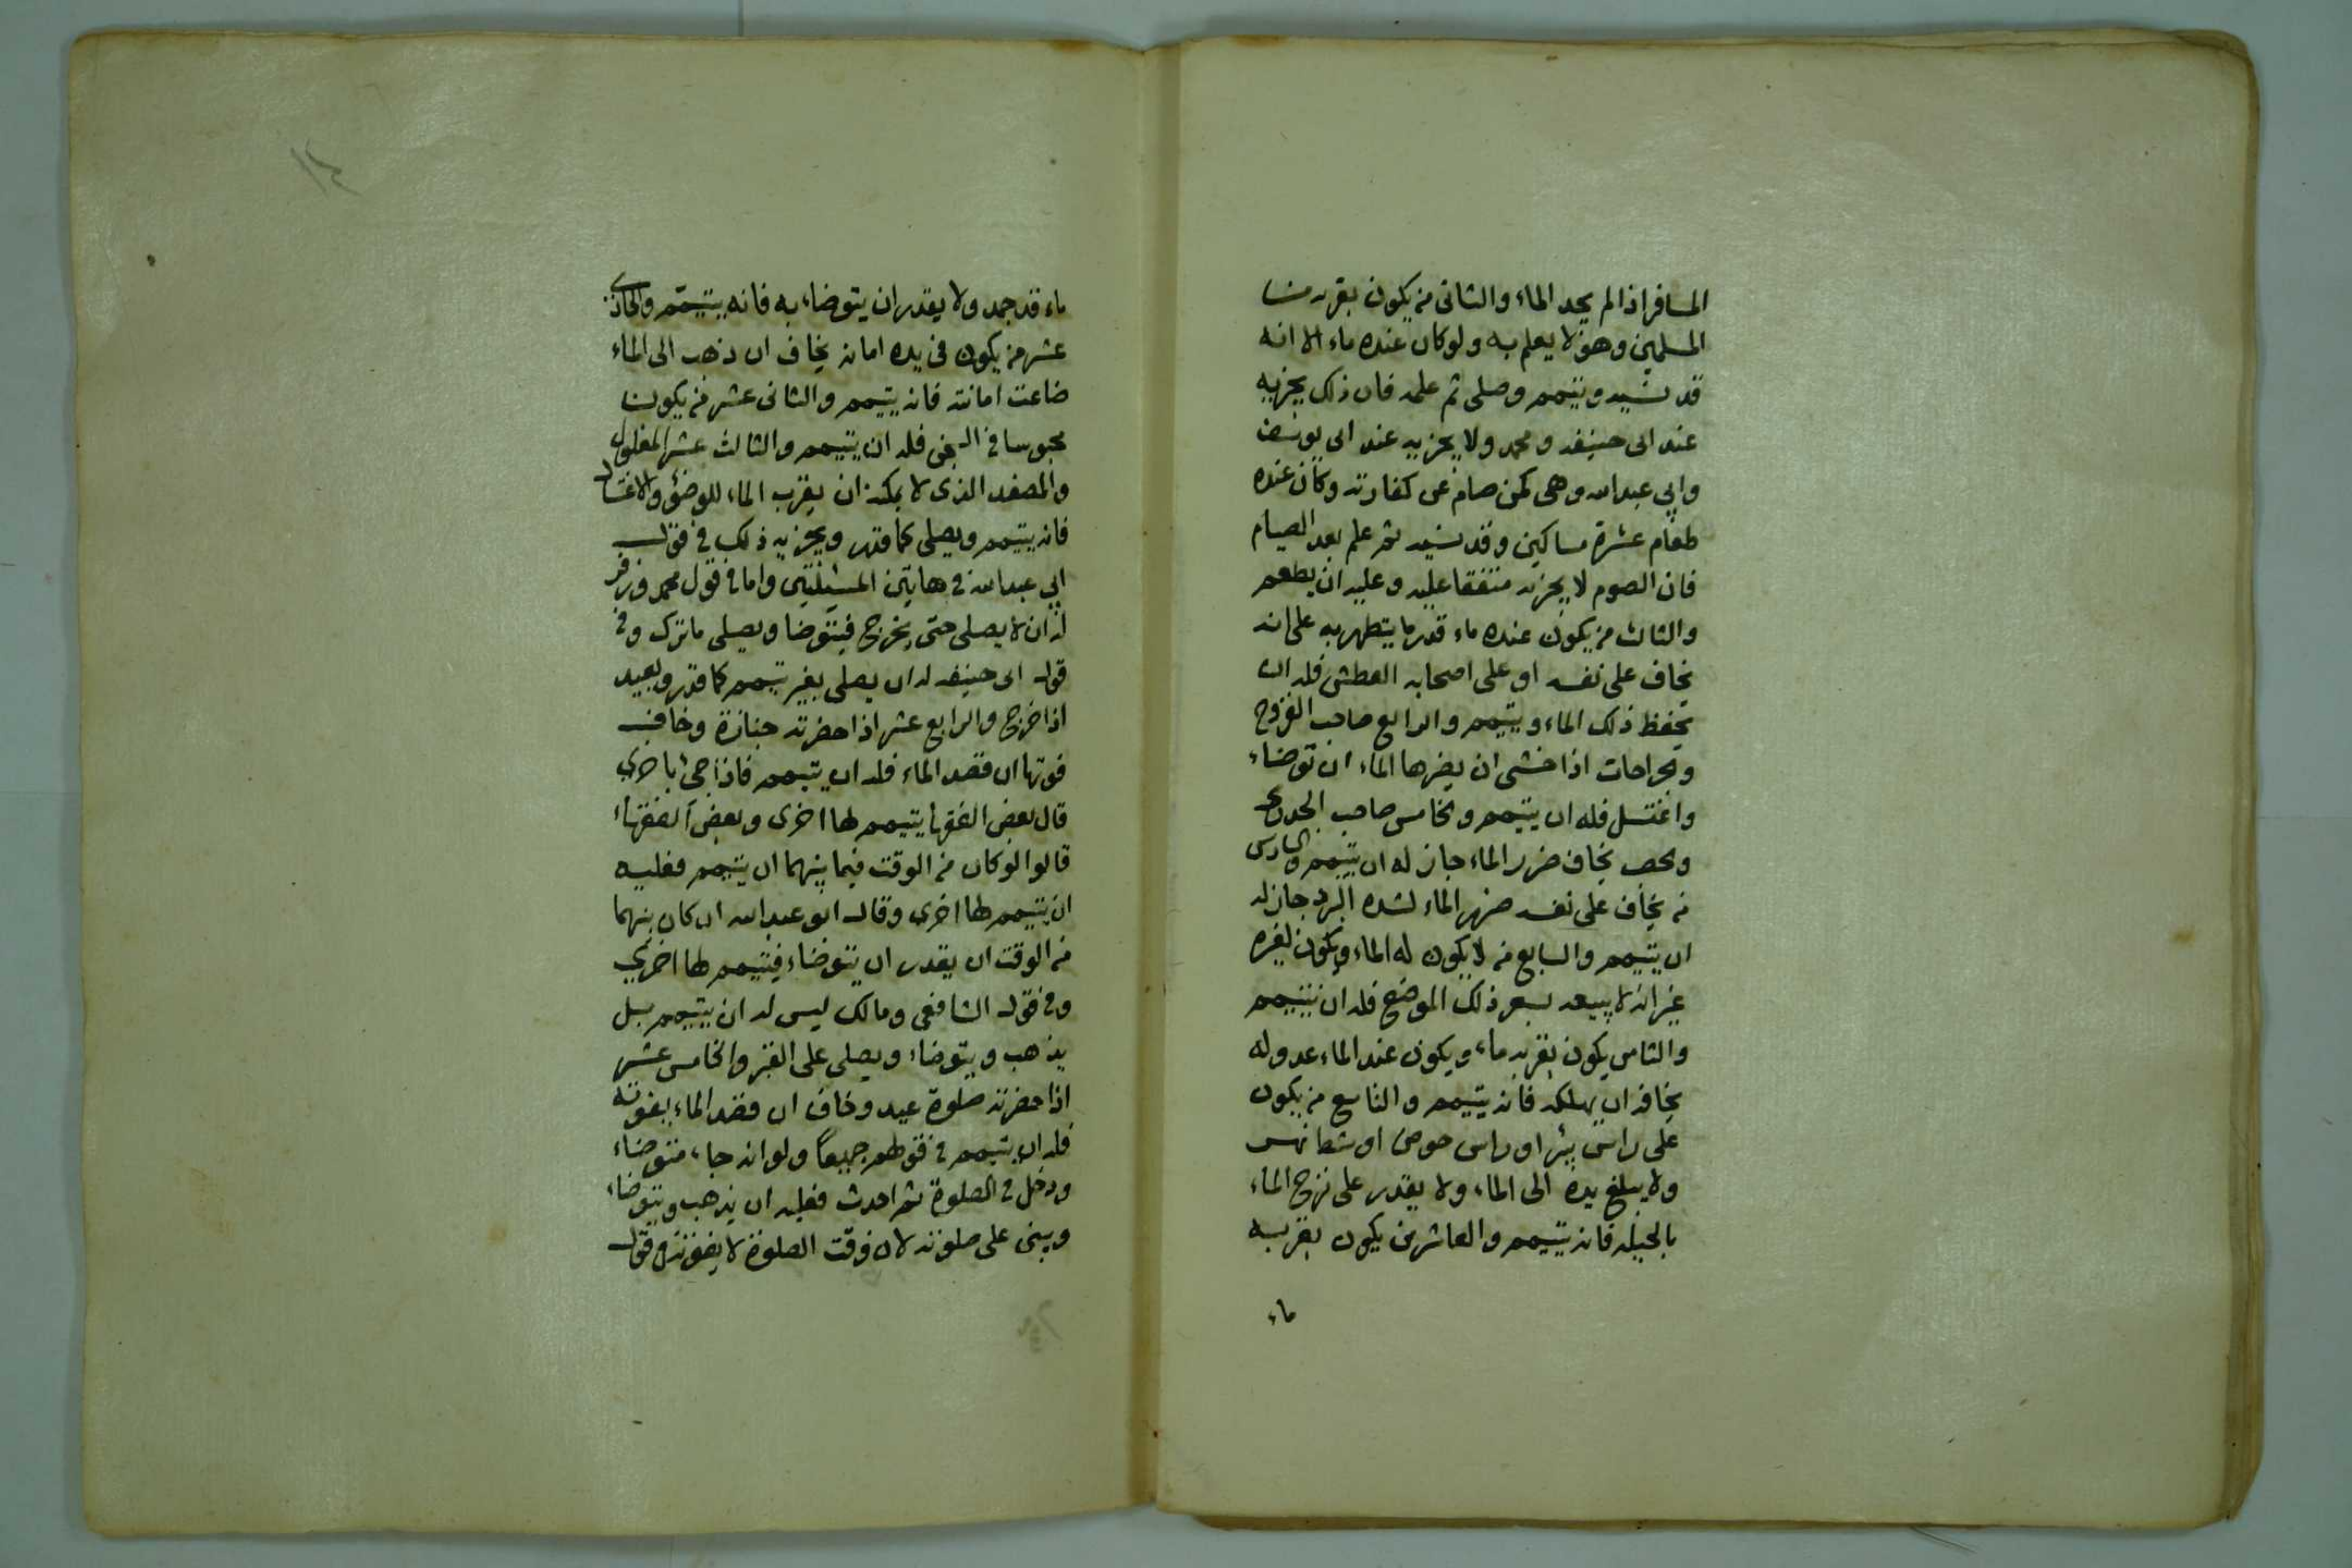 المسافر اذا لم يجد الماء والثانى من يكون بقربه من
المسلمين وهو لا يعلم به ولو كان عنده ماء الا انه
قد نسيه وتيمم وصلى ثم علمه فان ذلك يجزيه
عند ابى حنيفه ومحمد ولا يجزيه عند ابى يوسف
وابي عبدالله وهى كمن صام عن كفارته وكان عنده
طعام عشرة مساكين وقد نسيه ثم علم بعد الصيام
فان الصوم لا يجزيه متفقا عليه وعليه ان يطعم
والثالث من يكون عنده ماء قدر ما يتطهر به على انه
يخاف على نفسه او على اصحابه العطش فله ان
يحفظ ذلك الماء ويتيمم والرابع صاحب القروح
والجراحات اذا خشى ان يضرها الماء ان توضاء
واغتسل فله ان يتيمم والخامس صاحب الجدرى
والحصبه يخاف ضرر الماء جاز له ان يتيمم والسادس
من يخاف على نفسه ضرر الماء لشده البرد جاز له
ان يتيمم والسابع من لا يكون له الماء ويكون لغيره
غير انه لا يبيعه بسعر ذلك الموضع فله ان يتيمم
والثامن يكون بقربه ماء ويكون عند الماء عدو له
يخافه ان يهلكه فانه يتيمم والتاسع من يكون
على راس بئر او راس حوض او شط نهر
ولا يبلغ يده الى الماء ولا يقدر على نزح الماء
بالحيله فانه يتيمم والعاشر من يكون بقربه
ماء
١٤
ماء قد جمد ولا يقدر ان يتوضاء به فانه يتيمم والحادى
عشر من يكون فى يده امانه يخاف ان ذهب الى الماء
ضاعت امانته فانه يتيمم والثانى عشر من يكون
محبوسا في السجن فله ان يتيمم والثالث عشر المغلول
والمصفد الذى لا يمكنه ان يقرب الماء للوضؤ والاغتسال
فانه يتيمم ويصلى كما قدر ويجزيه ذلك في قول
ابي عبدالله في هاتين المسئلتين واما في قول محمد وزفر
له ان لا يصلى حتى يخرج فيتوضا ويصلى ما ترك وفي
قول ابى حنيفه له ان يصلى بغير تيمم كما قدر ويعيد
اذا خرج والرابع عشر اذا حضرته جنازة وخاف
فوتها ان قصد الماء فله ان يتيمم فاذا جئ باخرى
قال بعض الفقها يتيمم لها اخرى وبعض الفقهاء
قالوا لو كان من الوقت فيما بينهما ان يتيمم فعليه
ان يتيمم لها اخرى وقال ابو عبدالله ان كان بينهما
من الوقت ان يقدر ان يتوضاء فيتيمم لها اخرى
وفي قول الشافعى ومالك ليس له ان يتيمم بل
يذهب ويتوضاء ويصلى على القبر والخامس عشر
اذا حضرته صلوة عيد وخاف ان قصد الماء يفوته
فله ان يتيمم في قولهم جميعا ولو انه جاء متوضاء
ودخل في الصلوة ثم احدث فعليه ان يذهب ويتوضاء
ويبنى على صلوته لان وقت الصلوة لا يفوته وفي قول